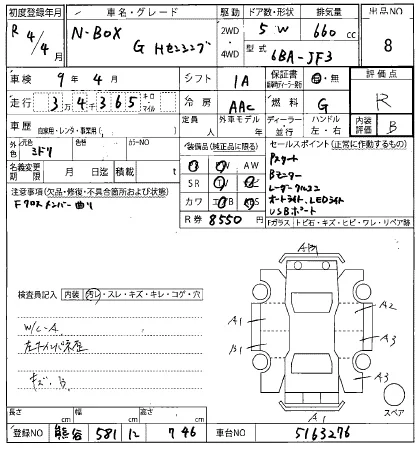 初度登録年月 車名・グレード 駆動 ドア数・形状 排気量 出品NO
R 4/4 N-BOX G Hセンシング 2WD・4WD 5 W 660 cc 8
型式 6BA-JF3
車検 9年 4月 シフト IA 保証書 有・無 評価点
走行 34365 キロ・マイル 冷房 AAC 燃料 G R
車歴 自家用・レンタ・事業用( ) 定員 人 外車モデル ディーラー・並行 ハンドル 左・右 内装評価 B
外装色 元色 色替 カラーNO
名義変更期限 月 日迄 積載 t
装備品(純正品に限る)
PS PW AW
SR TV
カワ エアB ABS
R券 8550円
セールスポイント(正常に作動するもの)
Pスタート
Bモニター
レーダークルコン
オートライト、LEDライト
USBポート
Fガラス トビ石・キズ・ヒビ・ワレ・リペア跡
注意事項(欠品・修復・不具合箇所および状態)
Fクロスメンバー曲り
検査員記入 内装 汚レ・スレ・キズ・キレ・コゲ・穴
W/C-A
キズ、B
A1
A2
B1
A3
A3
A1
スペア
長さ cm 幅 cm 高さ cm
登録NO 熊谷 581 ひ 746 車台NO 5163276